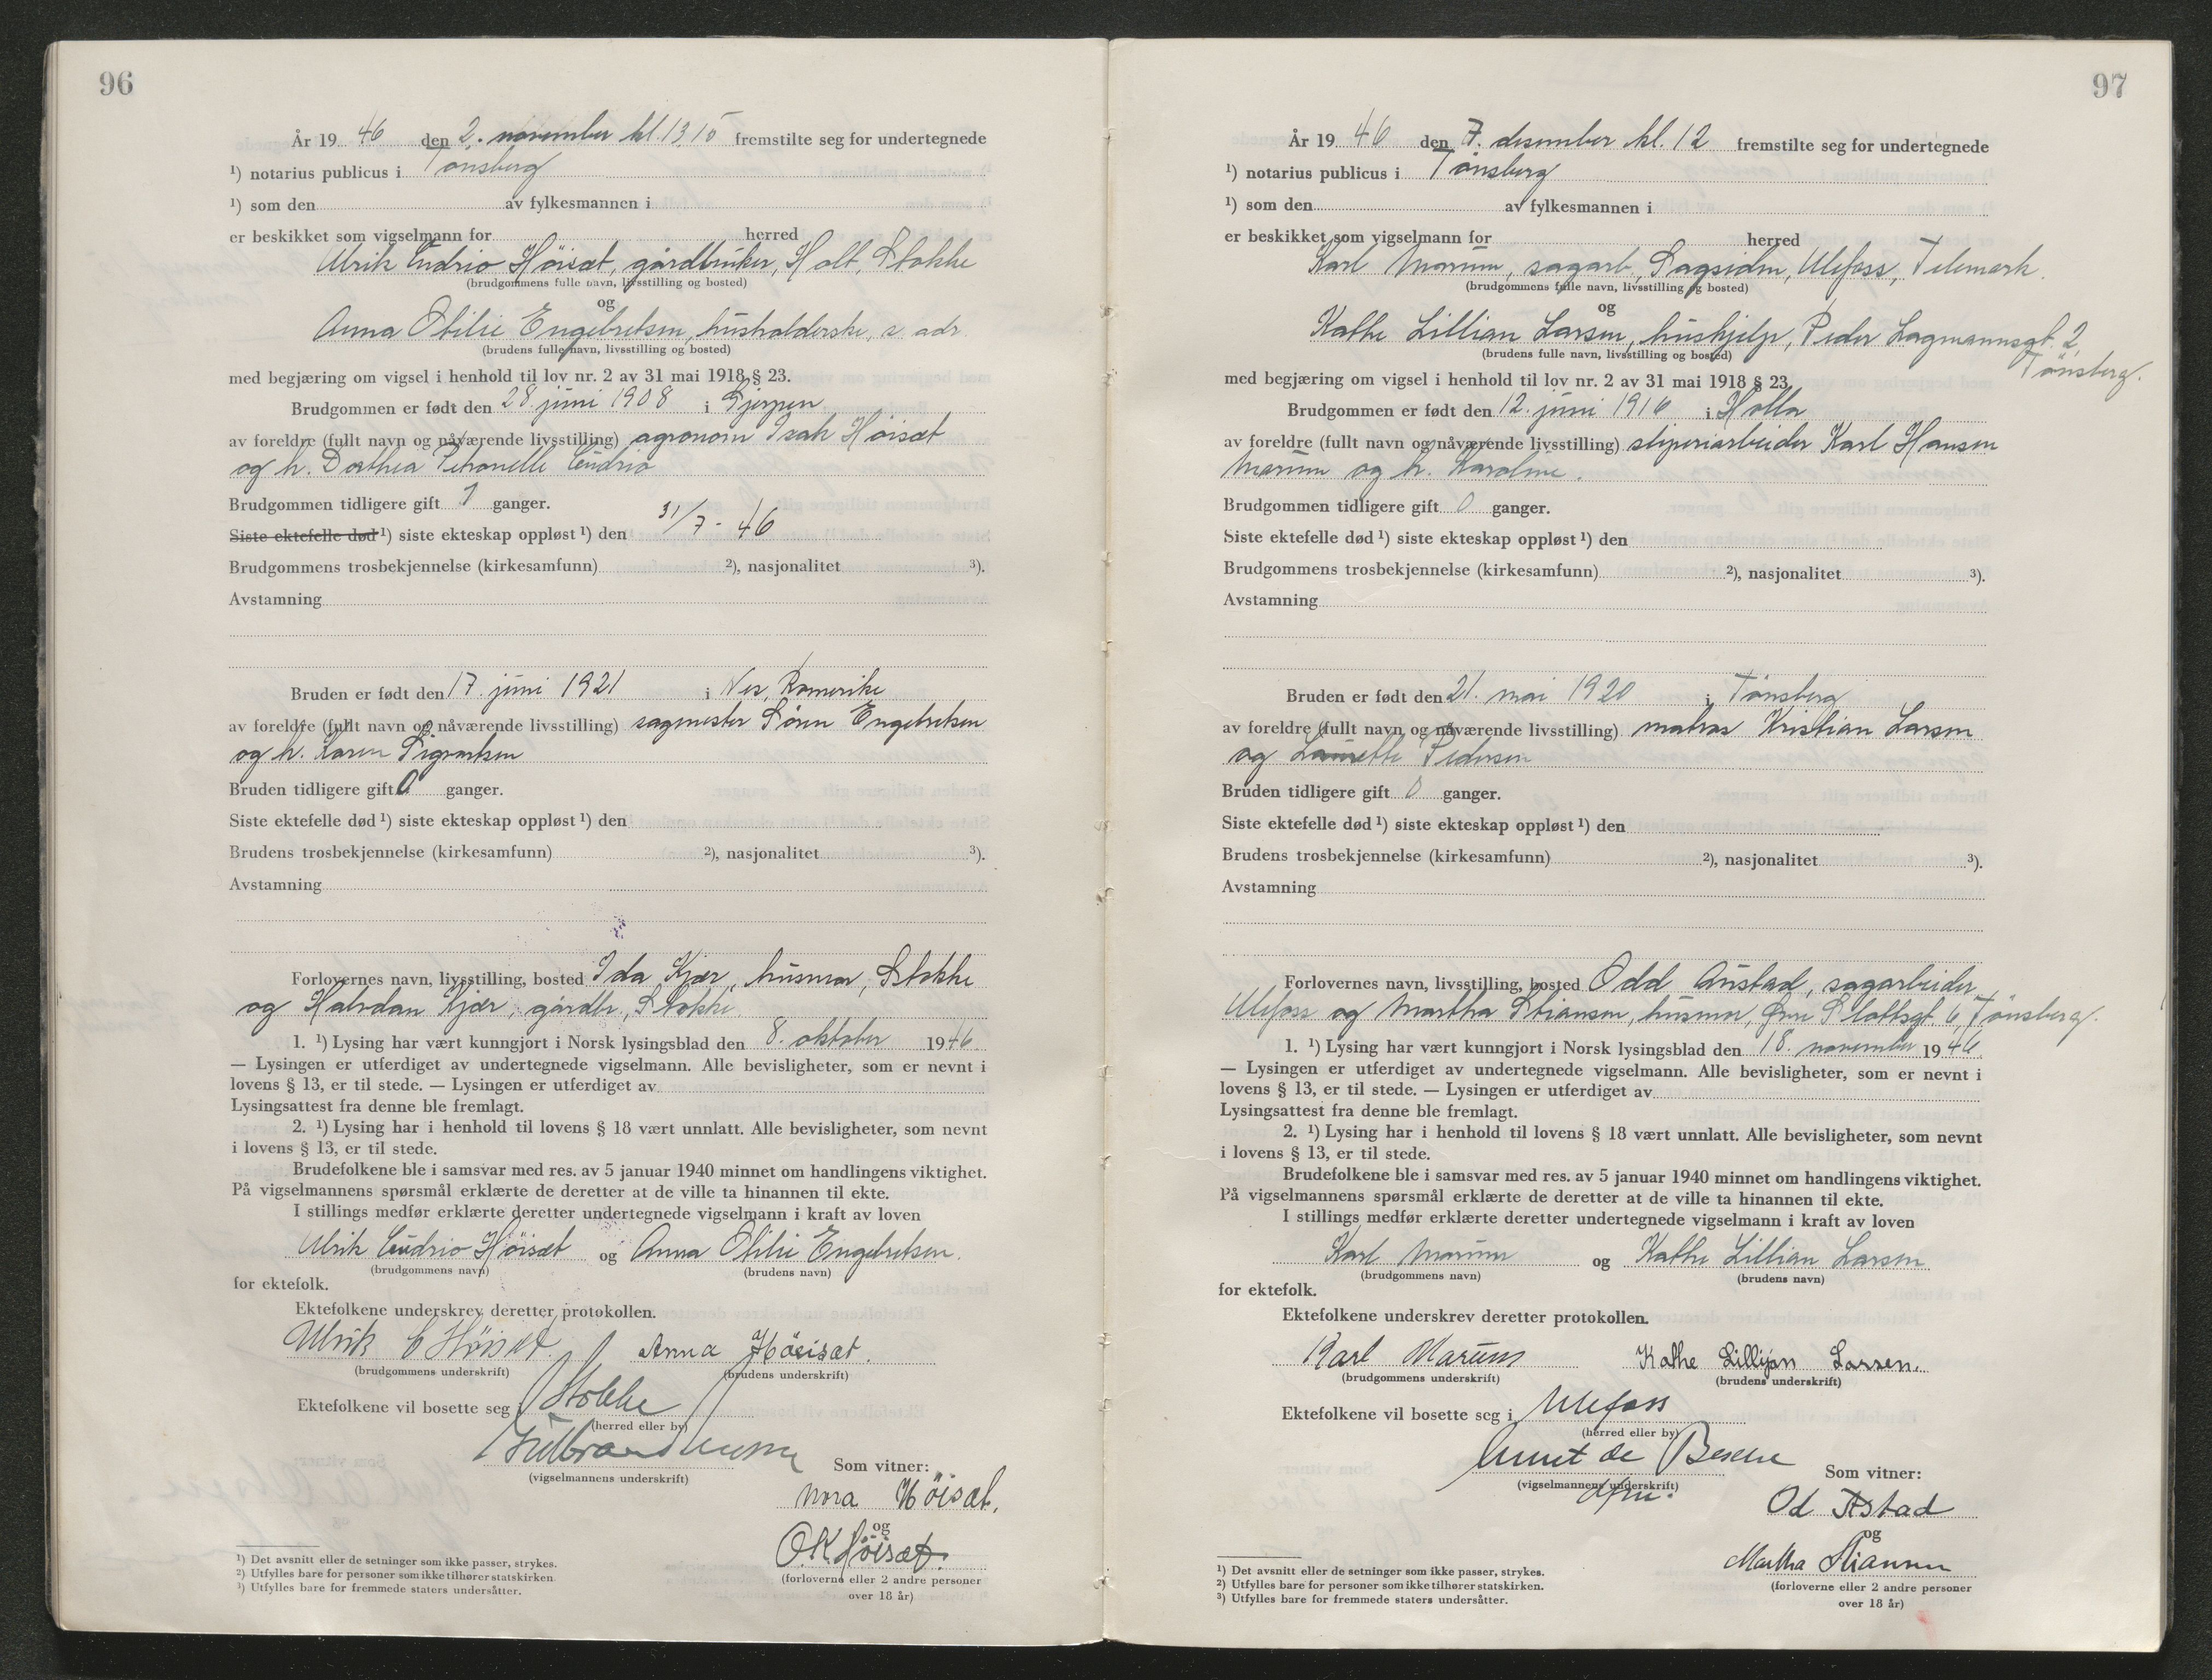 96
År 19 46 den 2. november kl. 13.15 fremstilte seg for undertegnede
¹) notarius publicus i Tønsberg
¹) som den av fylkesmannen i
er beskikket som vigselmann for herred
Ulrik Cudrio Höisæt, gårdbruker, Holt, Stokke
(brudgommens fulle navn, livsstilling og bosted)
og
Anna Otilie Engebretsen, husholderske, s. adr.
(brudens fulle navn, livsstilling og bosted)
med begjæring om vigsel i henhold til lov nr. 2 av 31 mai 1918 § 23.
Brudgommen er født den 28 juni 1908 i Gjerpen
av foreldre (fullt navn og nåværende livsstilling) agronom Isak Höisæt
og h. Dorthea Petronelle Cudrio
Brudgommen tidligere gift 1 ganger.
Siste ektefelle død ¹) siste ekteskap oppløst ¹) den 31/7 - 46
Brudgommens trosbekjennelse (kirkesamfunn) ²), nasjonalitet ³).
Avstamning
Bruden er født den 17 juni 1921 i Nes, Romerike
av foreldre (fullt navn og nåværende livsstilling) sagmester Søren Engebretsen
og h. Karen Sigvartsen
Bruden tidligere gift 0 ganger.
Siste ektefelle død ¹) siste ekteskap oppløst ¹) den
Brudens trosbekjennelse (kirkesamfunn) ²), nasjonalitet ³).
Avstamning
Forlovernes navn, livsstilling, bosted Ida Kjær, husmor, Stokke
og Halvdan Kjær, gårdbr, Stokke
1. ¹) Lysing har vært kunngjort i Norsk lysingsblad den 8. oktober 1946.
— Lysingen er utferdiget av undertegnede vigselmann. Alle bevisligheter, som er nevnt i
lovens § 13, er til stede. — Lysingen er utferdiget av
Lysingsattest fra denne ble fremlagt.
2. ¹) Lysing har i henhold til lovens § 18 vært unnlatt. Alle bevisligheter, som nevnt
i lovens § 13, er til stede.
Brudefolkene ble i samsvar med res. av 5 januar 1940 minnet om handlingens viktighet.
På vigselmannens spørsmål erklærte de deretter at de ville ta hinannen til ekte.
I stillings medfør erklærte deretter undertegnede vigselmann i kraft av loven
Ulrik Cudrio Höisæt og Anna Otilie Engebretsen.
(brudgommens navn) (brudens navn)
for ektefolk.
Ektefolkene underskrev deretter protokollen.
Ulrik C Höisæt. Anna Höisæt.
(brudgommens underskrift) (brudens underskrift)
Ektefolkene vil bosette seg i Stokke
(herred eller by)
(vigselmannens underskrift)
Som vitner:
Nora Höisæt.
og
O.K Höisæt.
(forloverne eller 2 andre personer
over 18 år)
¹) Det avsnitt eller de setninger som ikke passer, strykes.
²) Utfylles bare for personer som ikke tilhører statskirken.
³) Utfylles bare for fremmede staters undersåtter.
97
År 19 46 den 7. desember kl. 12 fremstilte seg for undertegnede
¹) notarius publicus i Tønsberg
¹) som den av fylkesmannen i
er beskikket som vigselmann for herred
Karl Marum, sagarb., Sagsiden, Ulefoss, Telemark.
(brudgommens fulle navn, livsstilling og bosted)
og
Kathe Lillian Larsen, hushjelp, Peder Lagmannsgt. 2,
Tønsberg.
(brudens fulle navn, livsstilling og bosted)
med begjæring om vigsel i henhold til lov nr. 2 av 31 mai 1918 § 23.
Brudgommen er født den 12. juni 1916 i Holla
av foreldre (fullt navn og nåværende livsstilling) sliperiarbeider Karl Hansen
Marum og h. Karoline.
Brudgommen tidligere gift 0 ganger.
Siste ektefelle død ¹) siste ekteskap oppløst ¹) den
Brudgommens trosbekjennelse (kirkesamfunn) ²), nasjonalitet ³).
Avstamning
Bruden er født den 21. mai 1920 i Tønsberg
av foreldre (fullt navn og nåværende livsstilling) matros Kristian Larsen
og Laurette Pedersen
Bruden tidligere gift 0 ganger.
Siste ektefelle død ¹) siste ekteskap oppløst ¹) den
Brudens trosbekjennelse (kirkesamfunn) ²), nasjonalitet ³).
Avstamning
Forlovernes navn, livsstilling, bosted Odd Austad, sagarbeider
Ulefoss og Martha Stiansen, husmor, Øvre Slottsgt. 6, Tønsberg.
1. ¹) Lysing har vært kunngjort i Norsk lysingsblad den 18. november 1946
— Lysingen er utferdiget av undertegnede vigselmann. Alle bevisligheter, som er nevnt i
lovens § 13, er til stede. — Lysingen er utferdiget av
Lysingsattest fra denne ble fremlagt.
2. ¹) Lysing har i henhold til lovens § 18 vært unnlatt. Alle bevisligheter, som nevnt
i lovens § 13, er til stede.
Brudefolkene ble i samsvar med res. av 5 januar 1940 minnet om handlingens viktighet.
På vigselmannens spørsmål erklærte de deretter at de ville ta hinannen til ekte.
I stillings medfør erklærte deretter undertegnede vigselmann i kraft av loven
Karl Marum og Kathe Lillian Larsen
(brudgommens navn) (brudens navn)
for ektefolk.
Ektefolkene underskrev deretter protokollen.
Karl Marum Kathe Lillijan Larsen.
(brudgommens underskrift) (brudens underskrift)
Ektefolkene vil bosette seg i Ulefoss
(herred eller by)
de Besche
(vigselmannens underskrift)
Som vitner:
Od Astad
og
Martha Stiansen
(forloverne eller 2 andre personer
over 18 år)
¹) Det avsnitt eller de setninger som ikke passer, strykes.
²) Utfylles bare for personer som ikke tilhører statskirken.
³) Utfylles bare for fremmede staters undersåtter.